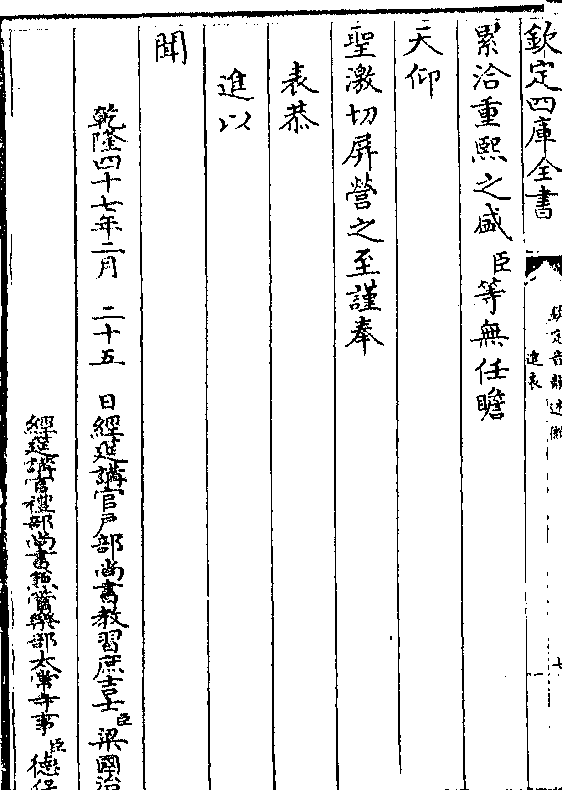 欽定四庫全書
欽定音韻述微
進表
七
累洽重熙之盛臣等無任瞻
天仰
聖激切屏營之至謹奉
表恭
進以
聞
乾隆四十七年二月 二十五 日經筵講官戶部尚書教習庶吉士臣梁國治
經筵講官禮部尚書兼管樂部太常寺事臣德保